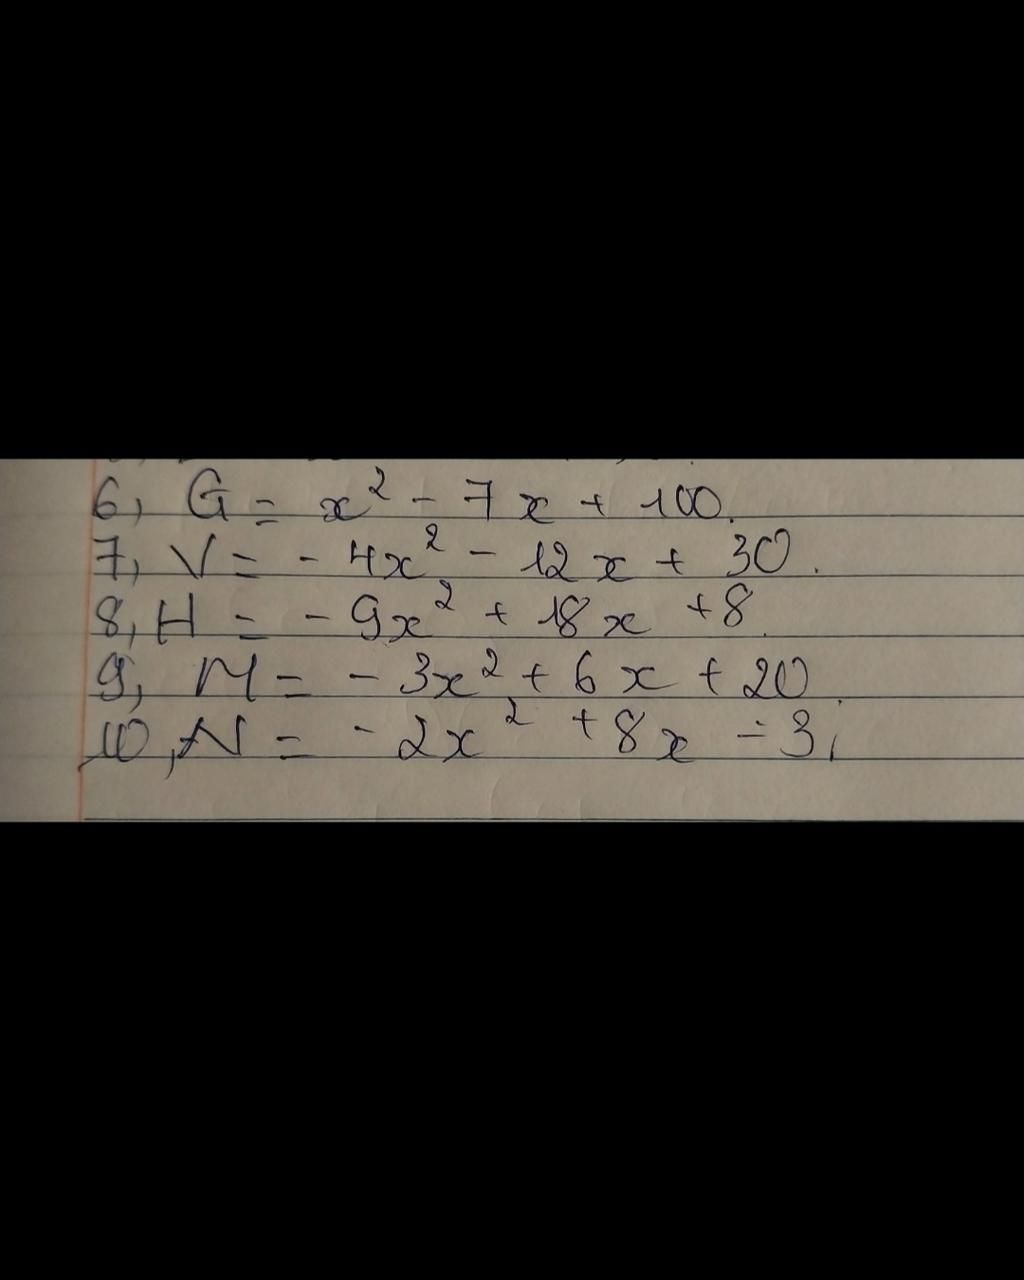 6, G = x² - 7x + 100.
7, V = - 4x² - 12x + 30.
8, H = - 9x² + 18x + 8.
9, M = - 3x² + 6x + 20.
10, N = - 2x² + 8x - 3,